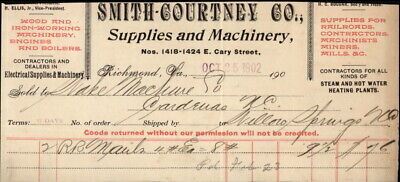 R. ELLIS, Jr., Vice-President.
SMITH-COURTNEY CO.,
Supplies and Machinery,
Nos. 1418-1424 E. Cary Street,
WOOD AND
IRON-WORKING
MACHINERY,
ENGINES
AND BOILERS.
CONTRACTORS AND
DEALERS IN
Electrical Supplies & Machinery
SUPPLIES FOR
RAILROADS,
CONTRACTORS,
MACHINISTS
MINERS,
MILLS, &C.
CONTRACTORS FOR ALL
KINDS OF
STEAM AND HOT WATER
HEATING PLANTS.
Richmond, Va., OCT 25 1902 190
Sold to Machine Co
Cardenas N.C.
Terms: No. of order Shipped to Willow Springs N.C.
Goods returned without our permission will not be credited.
2 R R Mauls 4# Ea = 8# 9½ 76